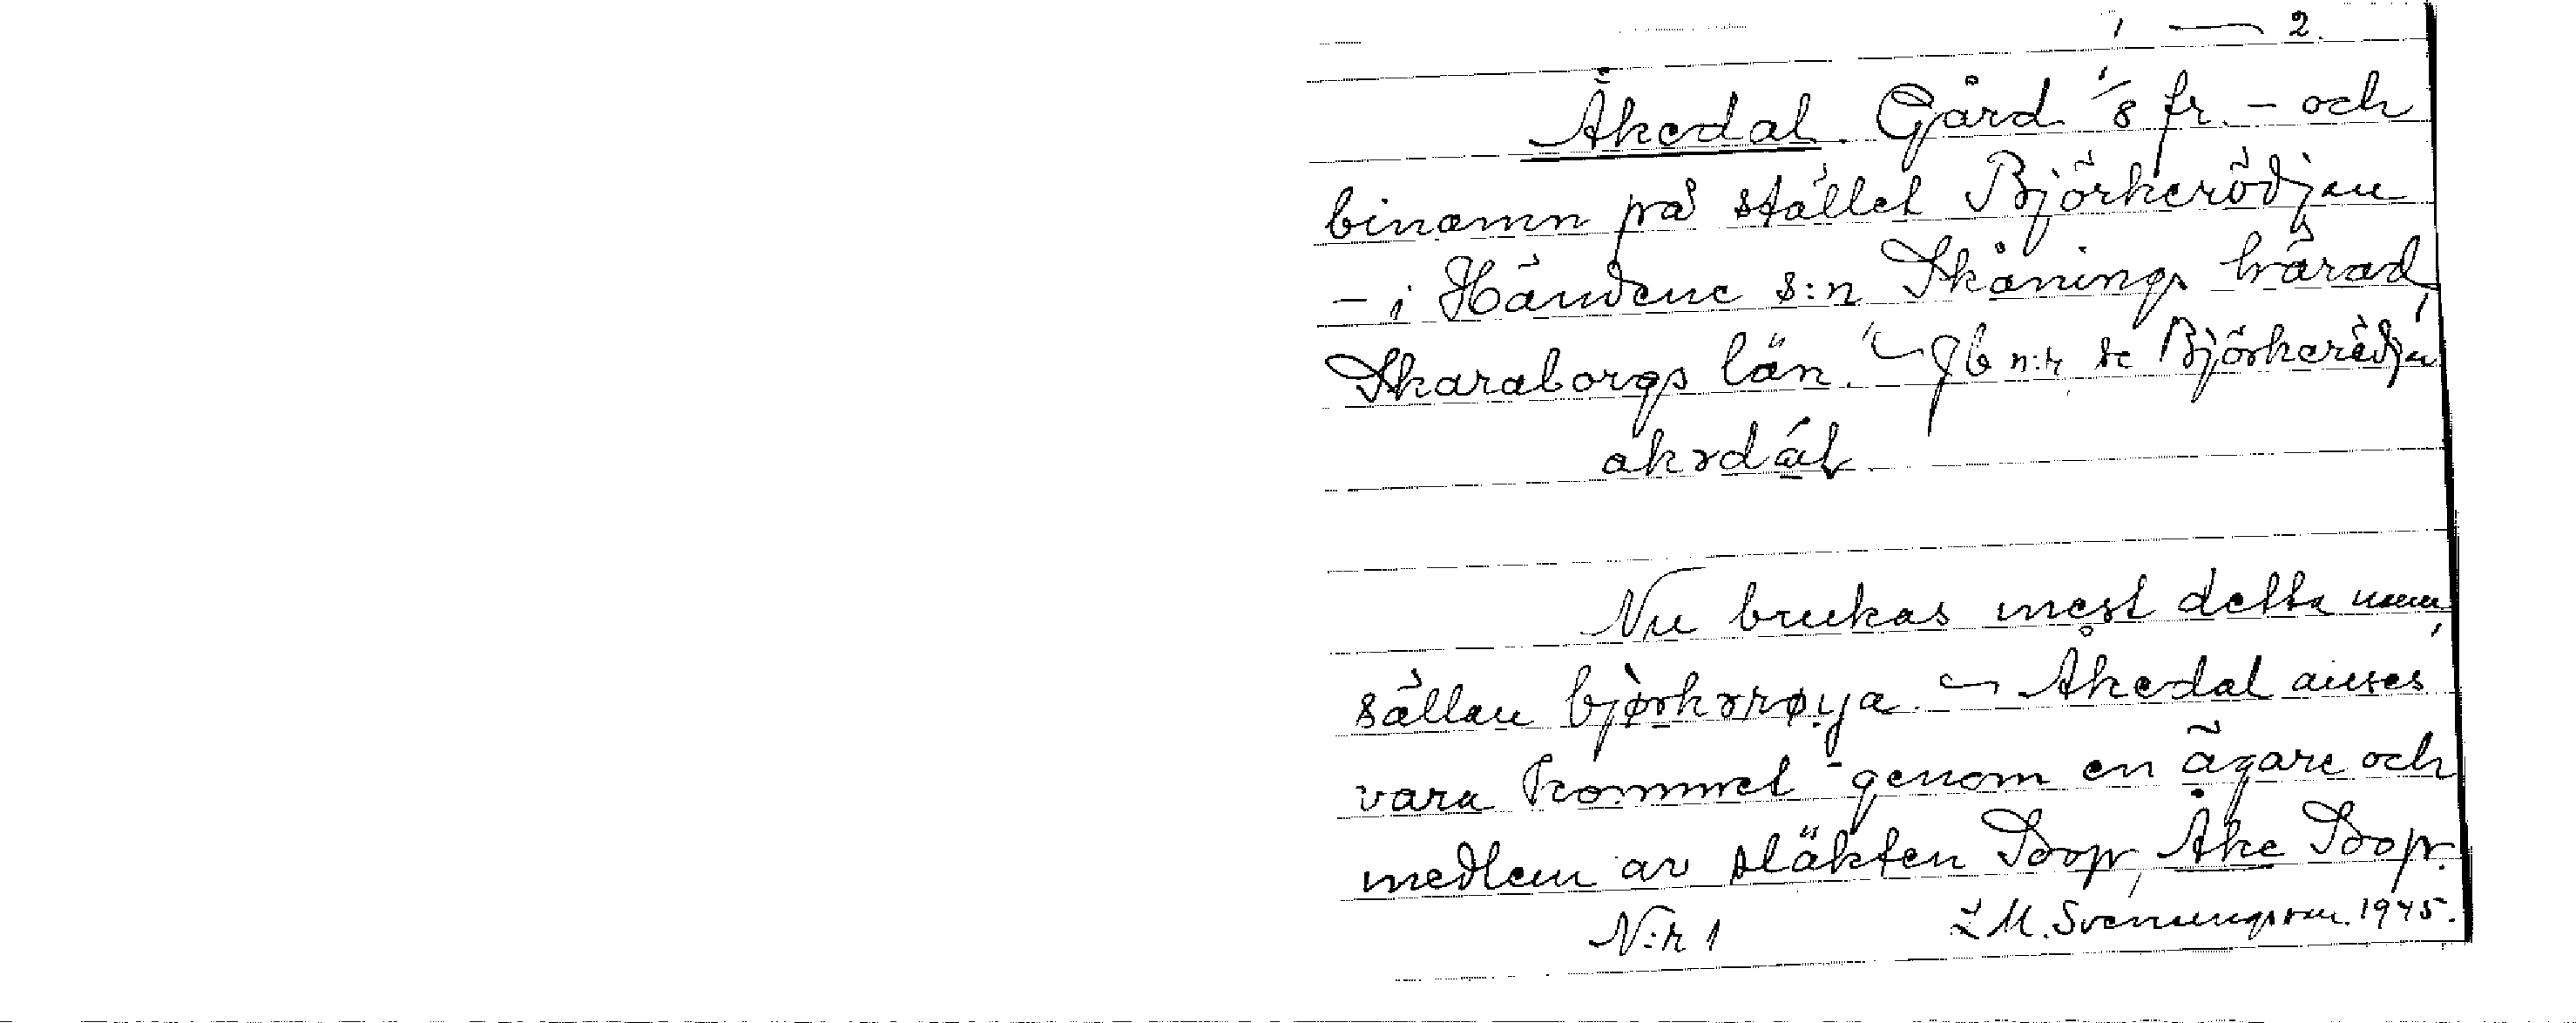 1 — 2.
Åkedal. Gård 1/8 fr. – och
binamn på stället Björkerödjan
– i Händene s:n Skånings härad,
Skaraborgs län. – Jb n:r se Björkerödjan
åkədál
Nu brukas mest detta namn,
sällan bjørkərøya. – Åkedal anses
vara kommet genom en ägare och
medlem av släkten Soop, Åke Soop.
N:r 1 L M. Svenungsson. 1945.